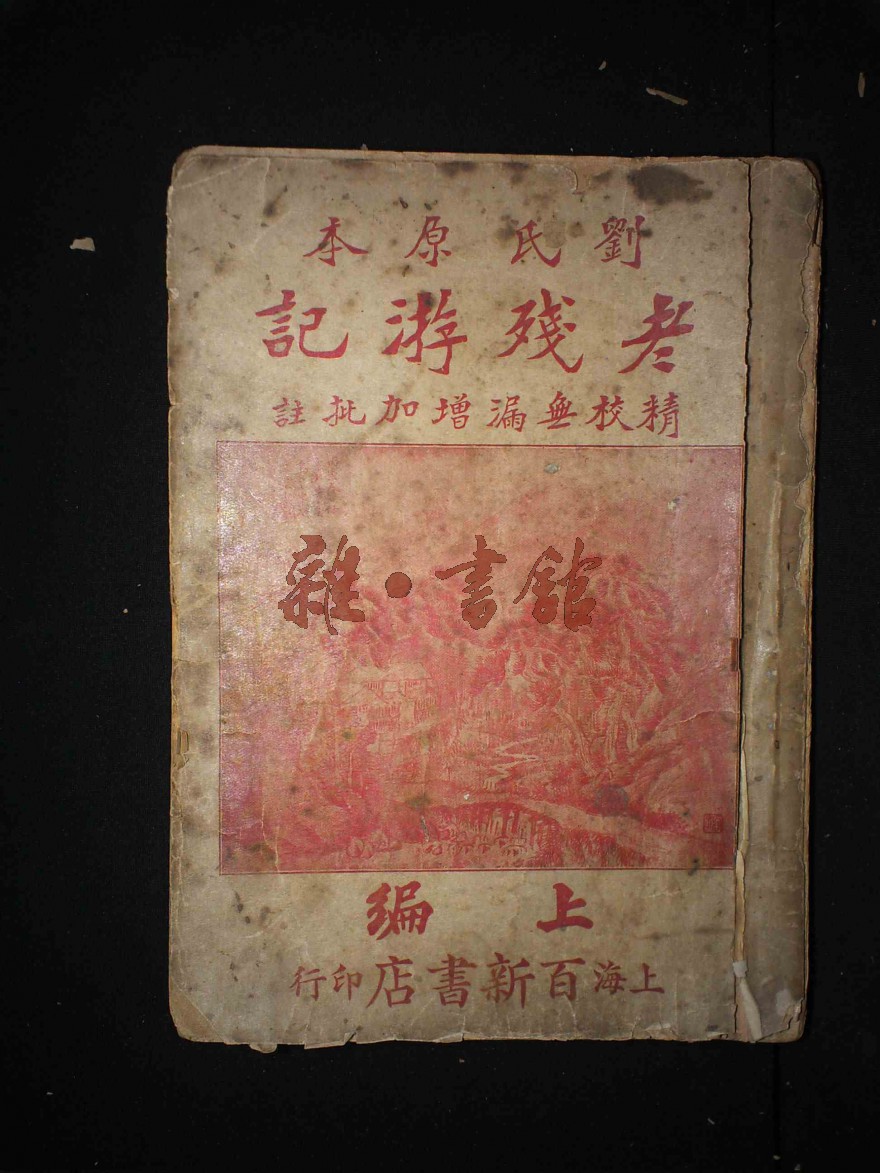 劉氏原本
老殘游記
精校無漏增加批註
雜·書館
上編
上海百新書店印行